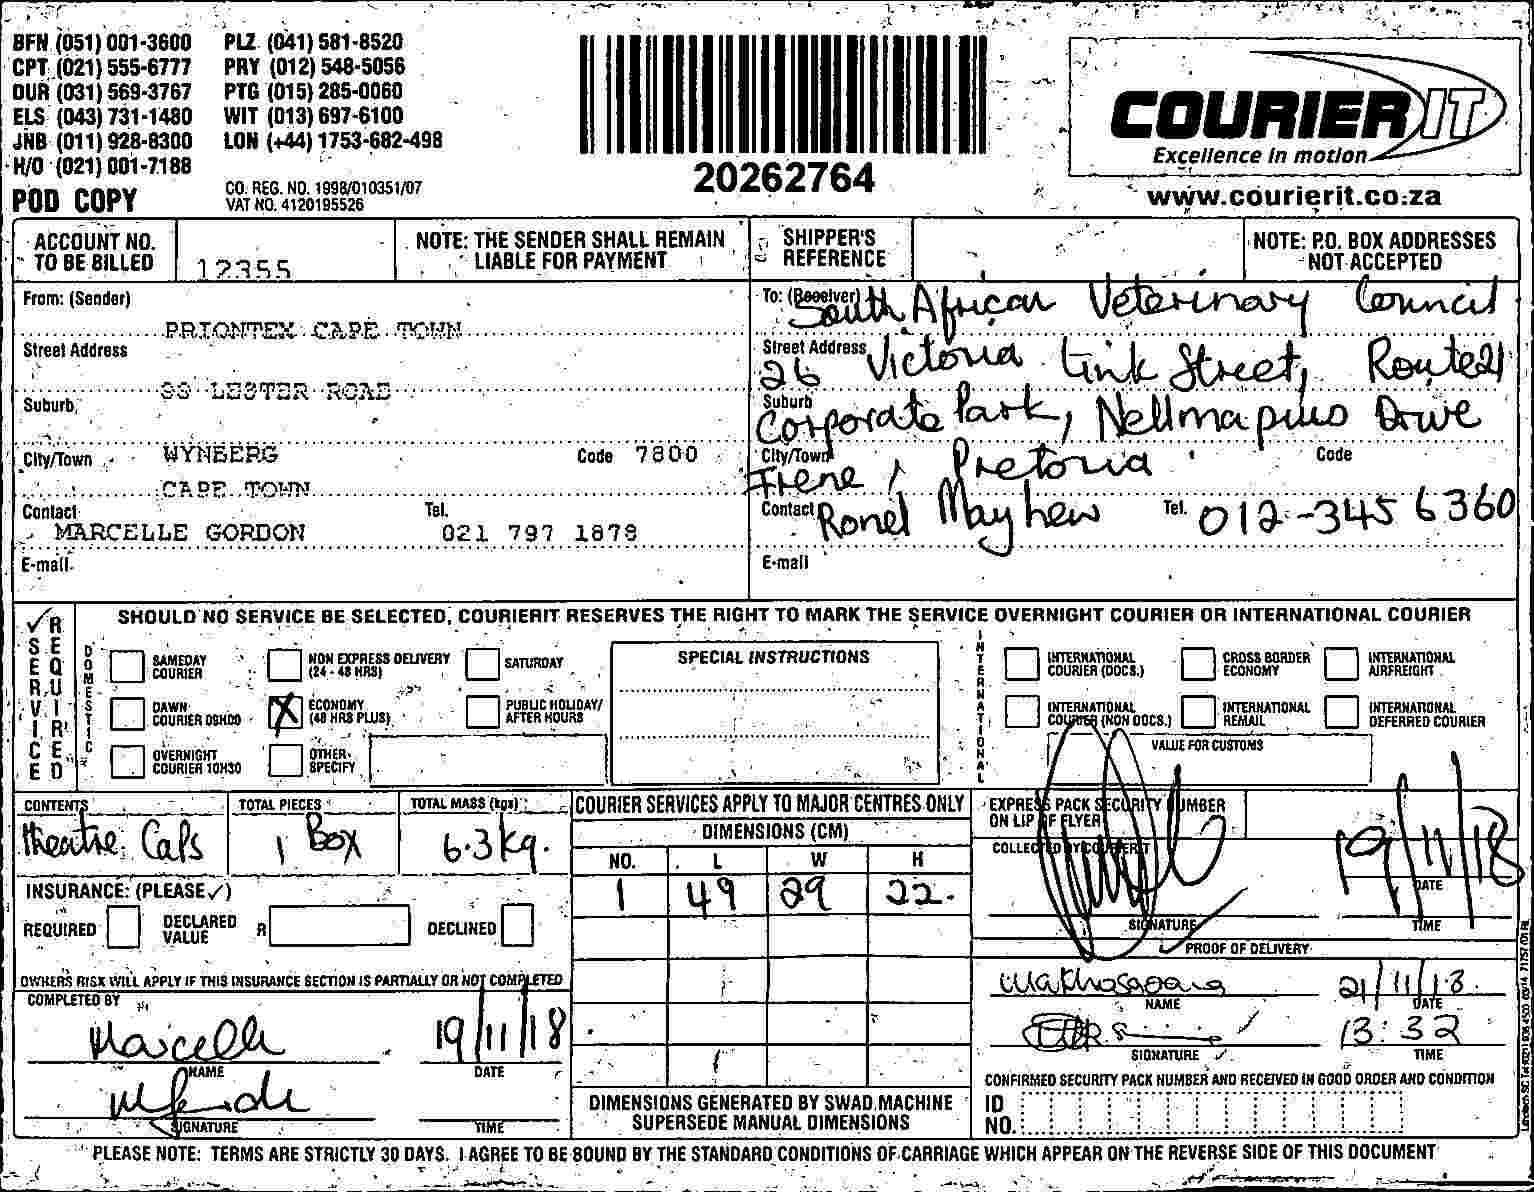 BFN (051) 001-3600 PLZ (041) 581-8520
CPT (021) 555-6777 PRY (012) 548-5056
DUR (031) 569-3767 PTG (015) 285-0060
ELS (043) 731-1480 WIT (013) 697-6100
JNB (011) 928-8300 LON (+44) 1753-682-498
H/O (021) 001-7188
POD COPY
CO. REG. NO. 1998/010351/07
VAT NO. 4120195526
20262764
COURIER IT
Excellence in motion
www.courierit.co.za
ACCOUNT NO. TO BE BILLED 12355
NOTE: THE SENDER SHALL REMAIN LIABLE FOR PAYMENT
SHIPPER'S REFERENCE
NOTE: P.O. BOX ADDRESSES NOT ACCEPTED
From: (Sender)
PRIONTEX CAPE TOWN
Street Address
LESTER ROAD
Suburb
City/Town WYNBERG Code 7800
CAPE TOWN
Contact Tel.
MARCELLE GORDON 021 797 1878
E-mail
To: (Receiver) South African Veterinary Council
Street Address
26 Victoria Link Street, Route21
Suburb
Corporate Park, Nellmapius Drive
City/Town Code
Irene, Pretoria
Contact Ronel Mayhew Tel. 012-345 6360
E-mail
SERVICE REQUIRED
SHOULD NO SERVICE BE SELECTED, COURIERIT RESERVES THE RIGHT TO MARK THE SERVICE OVERNIGHT COURIER OR INTERNATIONAL COURIER
DOMESTIC
SAMEDAY COURIER
NON EXPRESS DELIVERY (24 - 48 HRS)
SATURDAY
DAWN COURIER 08H00
X ECONOMY (48 HRS PLUS)
PUBLIC HOLIDAY/ AFTER HOURS
OVERNIGHT COURIER 10H30
OTHER- SPECIFY
SPECIAL INSTRUCTIONS
INTERNATIONAL
INTERNATIONAL COURIER (DOCS.)
CROSS BORDER ECONOMY
INTERNATIONAL AIRFREIGHT
INTERNATIONAL COURIER (NON DOCS.)
INTERNATIONAL REMAIL
INTERNATIONAL DEFERRED COURIER
VALUE FOR CUSTOMS
CONTENTS TOTAL PIECES TOTAL MASS (kgs)
theatre Caps 1 Box 6.3kg.
INSURANCE: (PLEASE ✓)
REQUIRED DECLARED VALUE R DECLINED
OWNERS RISK WILL APPLY IF THIS INSURANCE SECTION IS PARTIALLY OR NOT COMPLETED
COMPLETED BY
Marcelle 19/11/18
NAME DATE
SIGNATURE TIME
COURIER SERVICES APPLY TO MAJOR CENTRES ONLY
DIMENSIONS (CM)
NO. L W H
1 49 29 22.
DIMENSIONS GENERATED BY SWAD MACHINE SUPERSEDE MANUAL DIMENSIONS
EXPRESS PACK SECURITY NUMBER ON LIP OF FLYER
COLLECTED BY COURIERIT
19/11/18
DATE
SIGNATURE TIME
PROOF OF DELIVERY
21/11/18
NAME DATE
13:32
SIGNATURE TIME
CONFIRMED SECURITY PACK NUMBER AND RECEIVED IN GOOD ORDER AND CONDITION
ID NO.
PLEASE NOTE: TERMS ARE STRICTLY 30 DAYS. I AGREE TO BE BOUND BY THE STANDARD CONDITIONS OF CARRIAGE WHICH APPEAR ON THE REVERSE SIDE OF THIS DOCUMENT